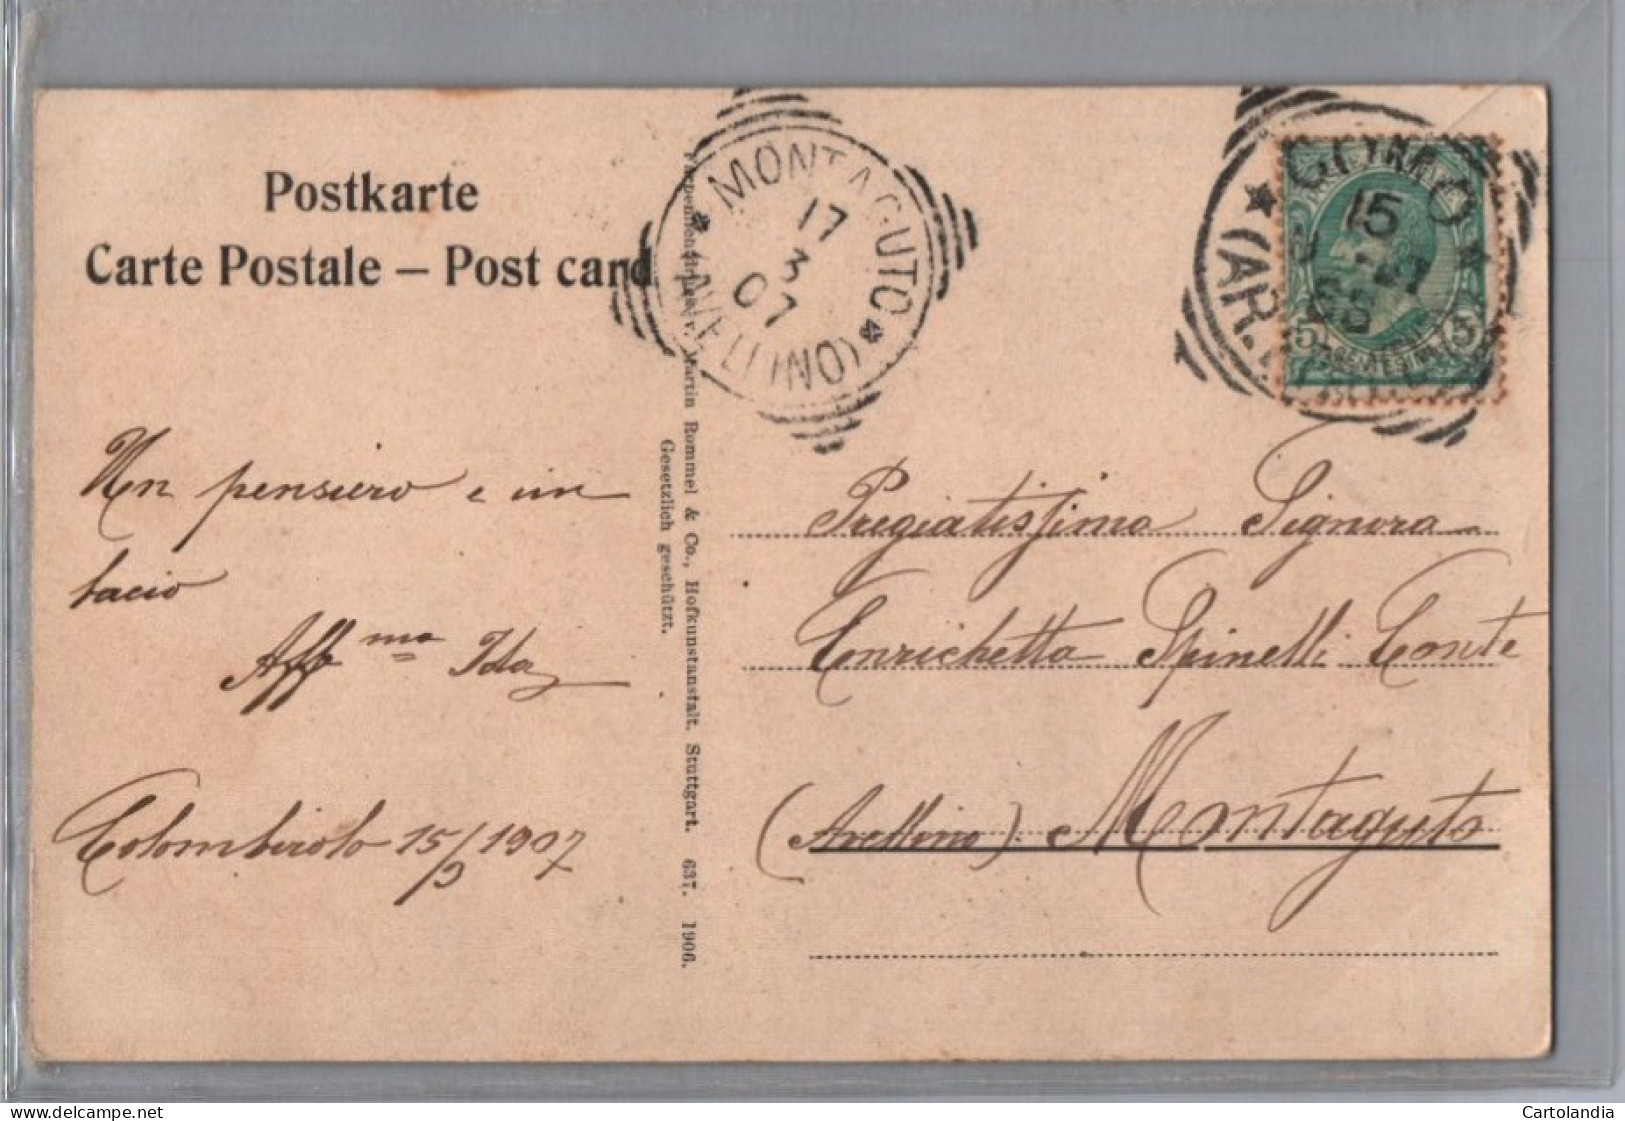 Postkarte
Carte Postale – Post card
Un pensiero e un
bacio
Aff ma Ida
Colombirolo 15/3 1907
Farbenlichtdruck v. Martin Rommel & Co., Hofkunstanstalt. Stuttgart. 637. 1906.
Gesetzlich geschützt.
MONTAGUTO
17
3
07
(AVELLINO)
15
5 5
Pregiatissima Signora
Enrichetta Spinelli Conte
(Avellino) Montaguto
Cartolandia